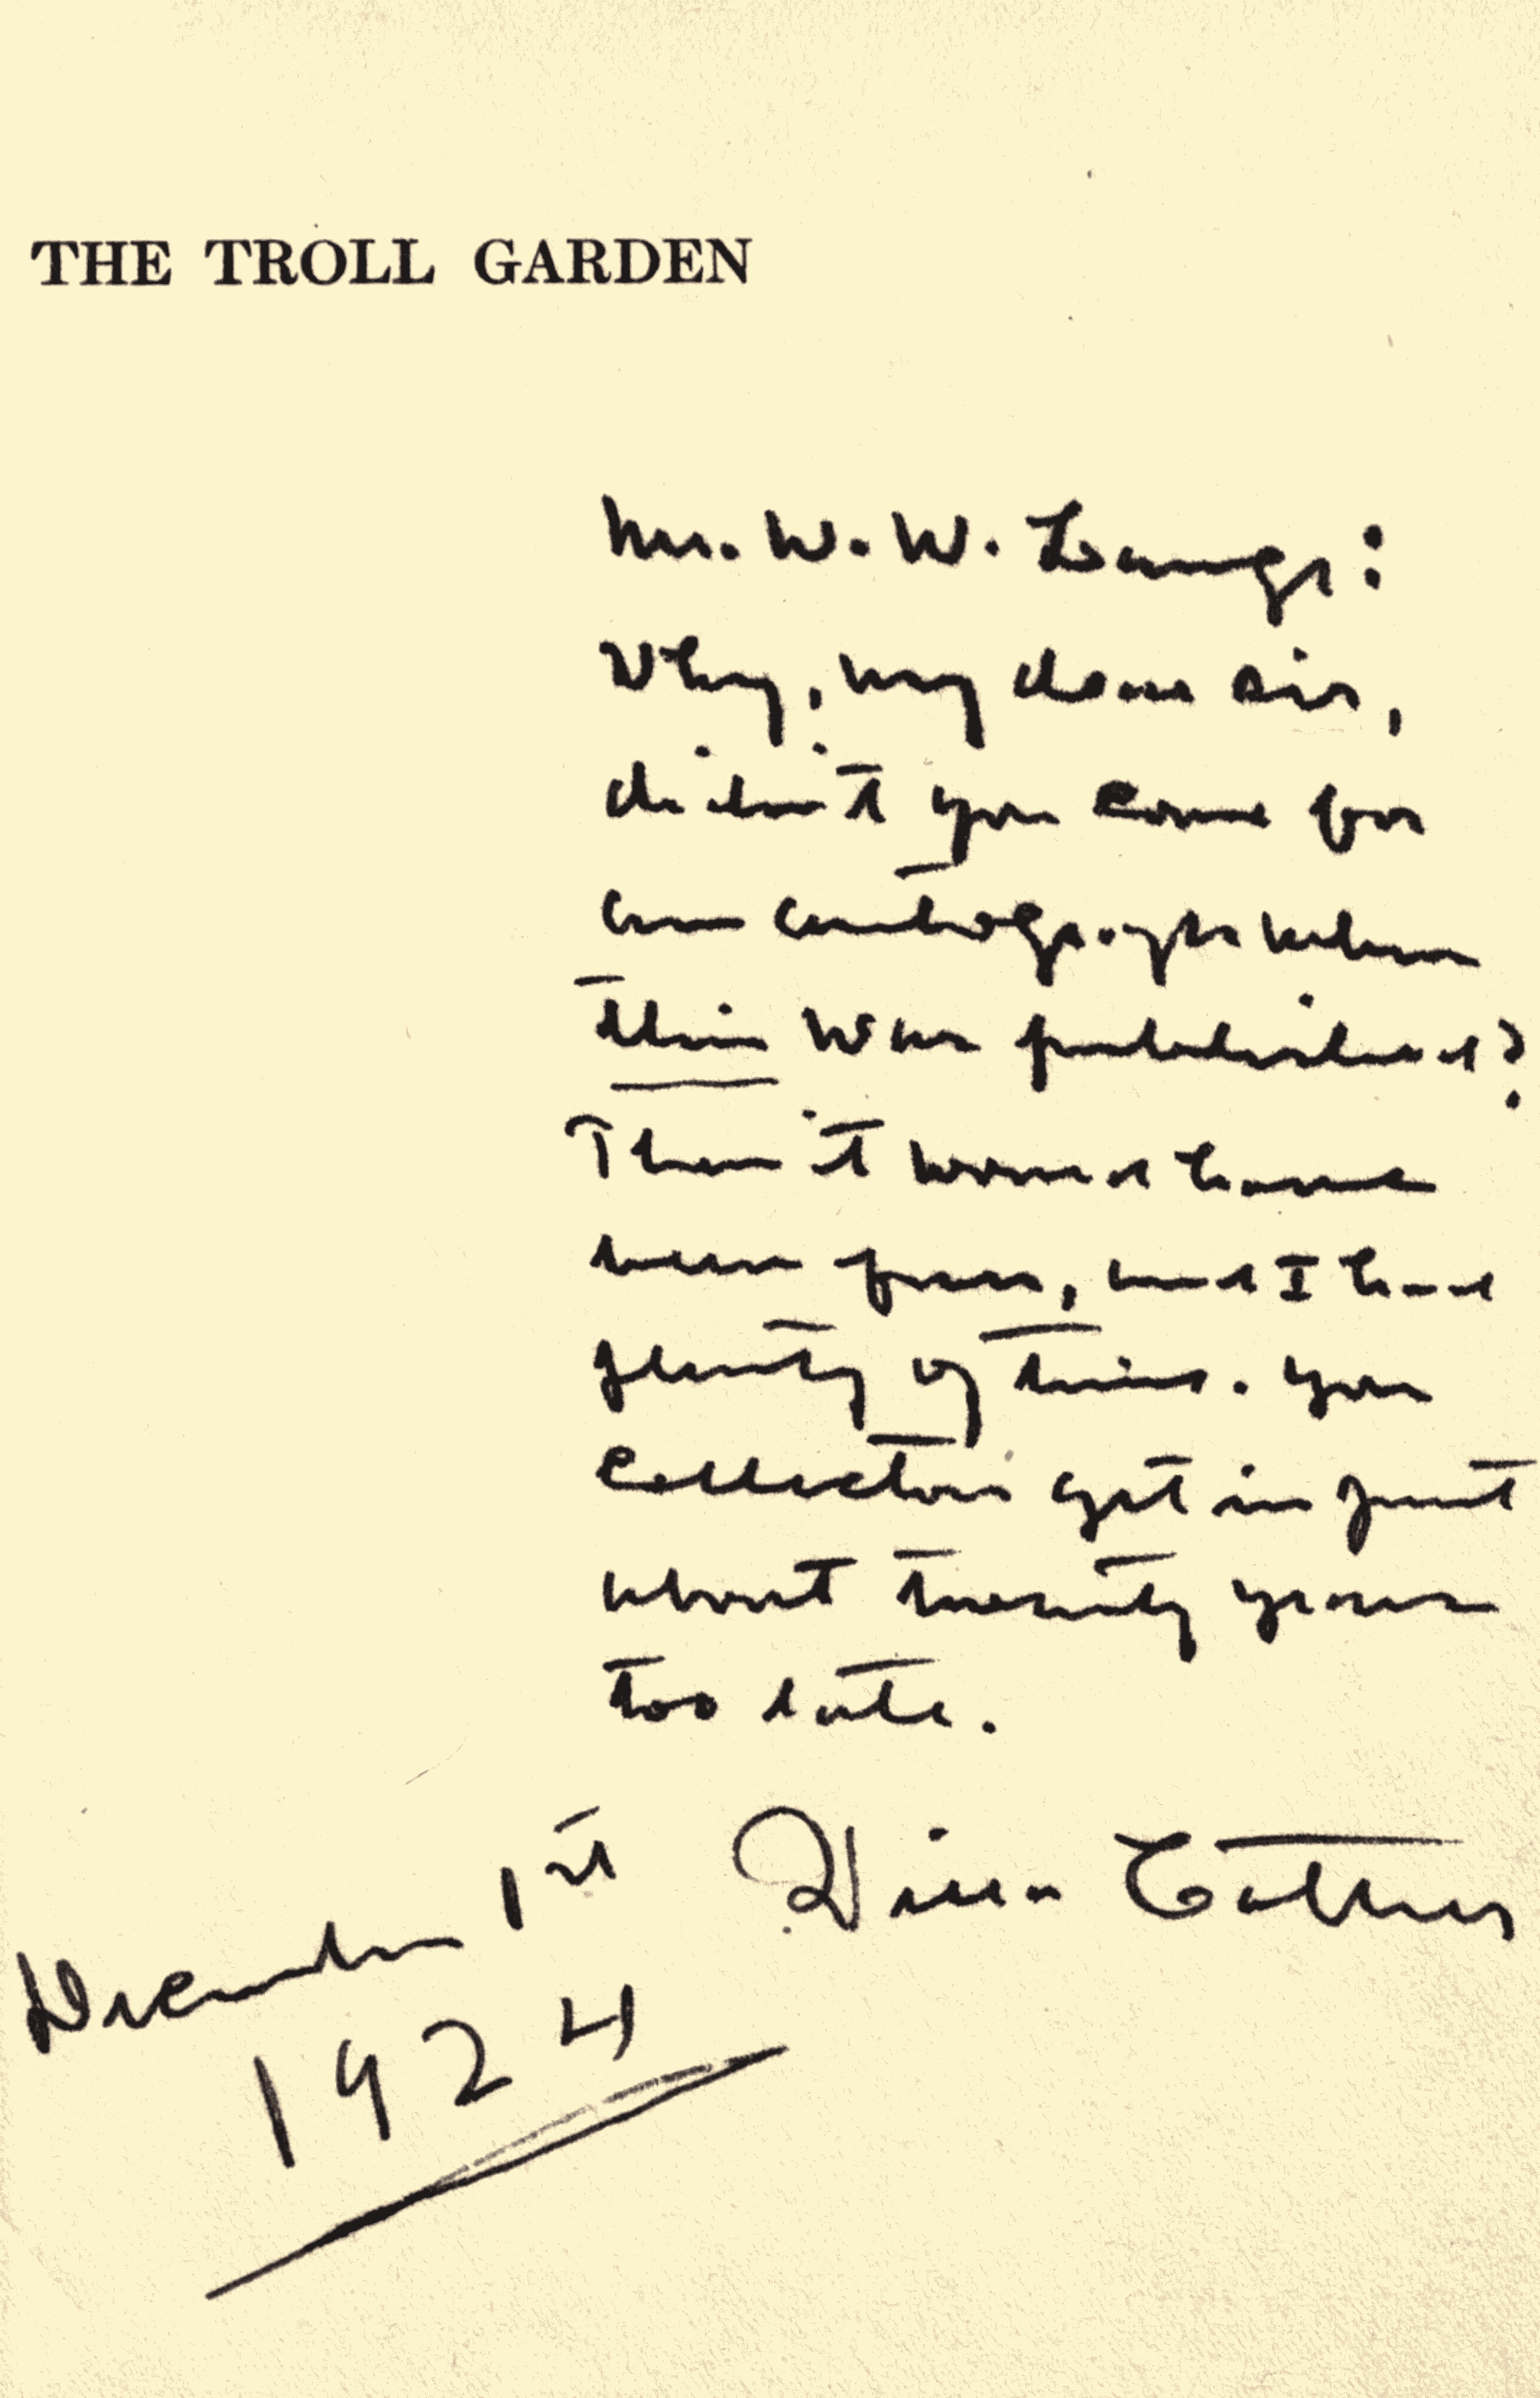 THE TROLL GARDEN
Mr. W. W. Lange:
Why, my dear sir,
didn't you come for
an autograph when
this was published?
Then it would have
been free, and I had
plenty of time. You
collectors get in just
about twenty years
too late.
Willa Cather
December 1st
1924